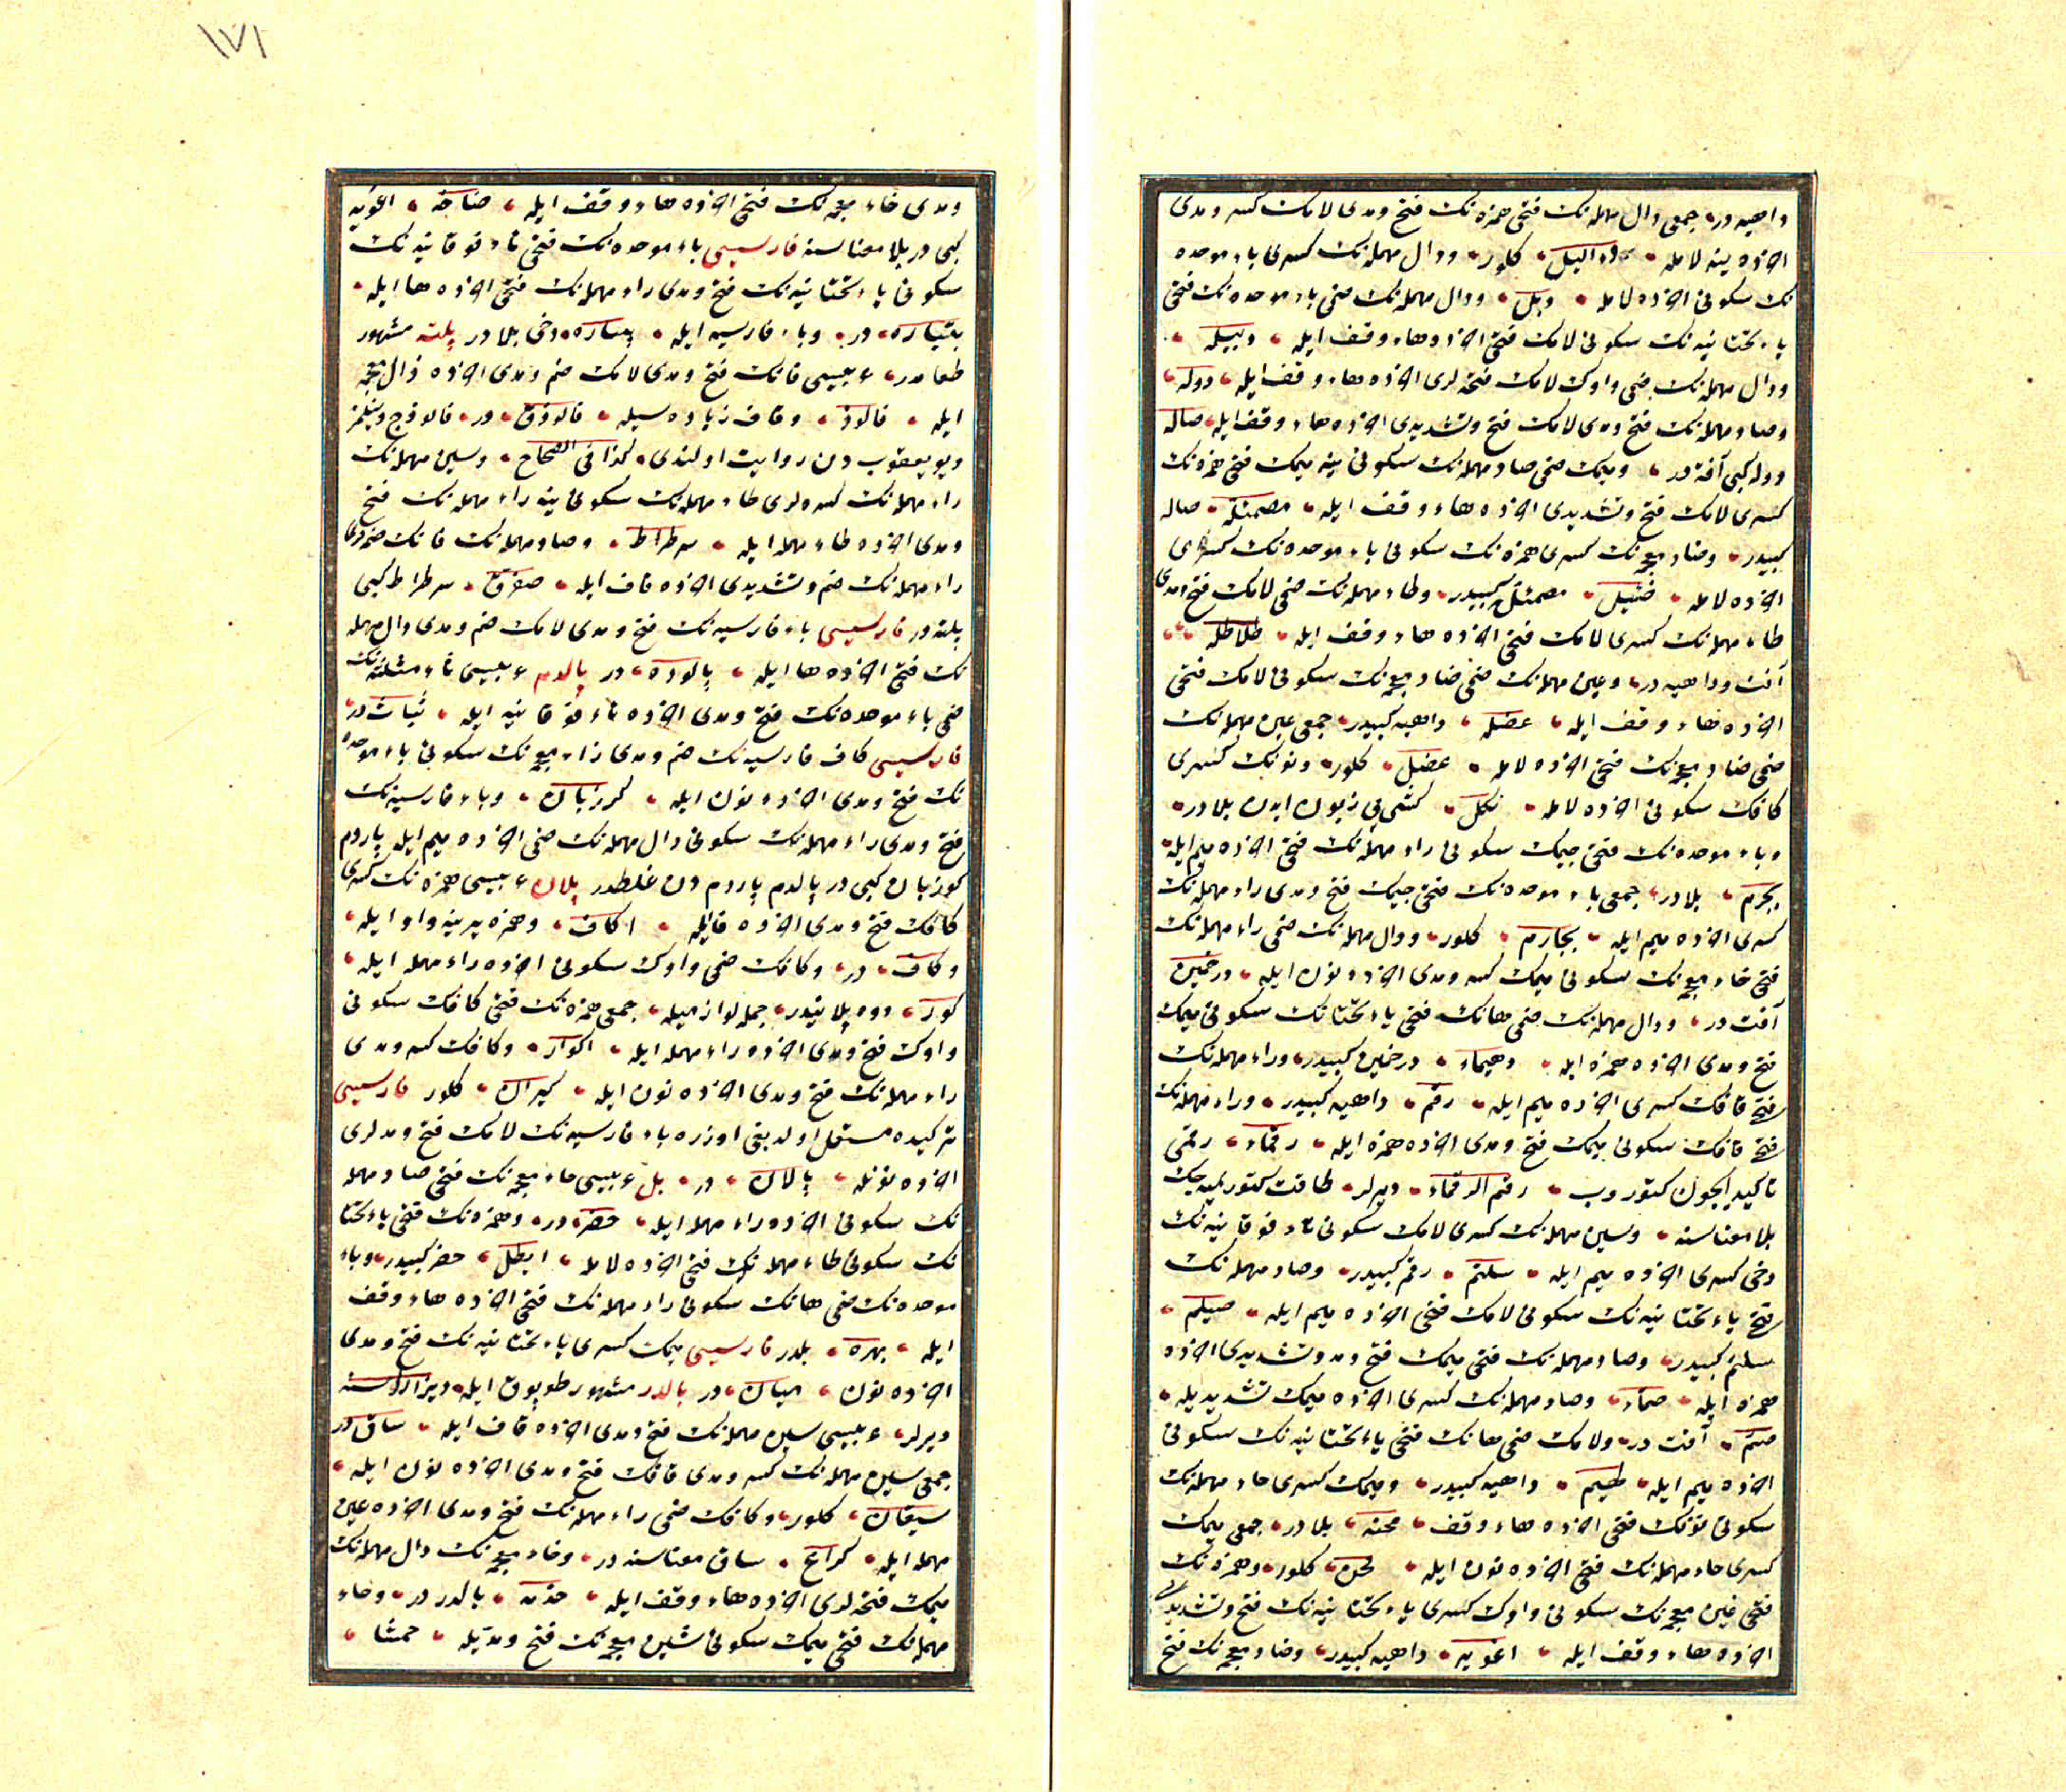 داهیه در جمعی دال مهمله‌نك فتحی همزه‌نك فتح ومدی لامك كسر ومدی
اخرده ینه لامله دءالیل كلور ودال مهمله‌نك كسری باء موحده
نك سكونی اخرده لامله دبل ودال مهمله‌نك ضمی باء موحده‌نك فتحی
یاء تحتانیه‌نك سكونی لامك فتحی اخرده هاء وقف ایله دبیله
ودال مهمله‌نك ضمی واوك لامك فتحه‌لری اخرده هاء وقف ایله دوله
وصاد مهمله‌نك فتح ومدی لامك فتح وتشدیدی اخرده هاء وقف ایله صاله
دوله كبی آفتدر ومیمك ضمی صاد مهمله‌نك سكونی ینه میمك فتحی همزه‌نك
كسری لامك فتح وتشدیدی اخرده هاء وقف ایله مصمئله صاله
كبیدر وضاد معجمه‌نك كسری همزه‌نك سكونی باء موحده‌نك كسری
اخرده لامله ضئبل مصمئله كبیدر وطاء مهمله‌نك ضمی لامك فتح ومدی
طاء مهمله‌نك كسری لامك فتحی اخرده هاء وقف ایله طلاطله
آفت وداهیه در وعین مهمله‌نك ضمی ضاد معجمه‌نك سكونی لامك فتحی
اخرده هاء وقف ایله عضله داهیه كبیدر جمعی عین مهمله‌نك
ضمی ضاد معجمه‌نك فتحی اخرده لامله عضل كلور ونونك كسری
كافك سكونی اخرده لامله نكل كشی یی زبون ایدن بلادر
وباء موحده‌نك فتحی جیمك سكونی راء مهمله‌نك فتحی اخرده میم ایله
بجرم بلادر جمعی باء موحده‌نك فتحی جیمك فتح ومدی راء مهمله‌نك
كسری اخرده میم ایله بجارم كلور ودال مهمله‌نك ضمی راء مهمله‌نك
فتحی خاء معجمه‌نك سكونی میمك كسر ومدی اخرده نون ایله درخمین
آفت در ودال مهمله‌نك ضمی هانك فتحی یاء تحتانك سكونی میمك
فتح ومدی اخرده همزه ایله دهیماء درخمین كبیدر وراء مهمله‌نك
فتح قافك كسری اخرده میم ایله رقم داهیه كبیدر وراء مهمله‌نك
فتح قافك سكونی میمك فتح ومدی اخرده همزه ایله رقماء رقمی
تاكید ایچون كتوروب رقم الرقماء دیرلر طاقت كتورلمیه‌جك
بلا معناسنه وسین مهمله‌نك كسری لامك سكونی تاء فوقانیه‌نك
دخی كسری اخرده میم ایله سلتم رقم كبیدر وصاد مهمله‌نك
فتح یاء تحتانیه‌نك سكونی لامك فتحی اخرده میم ایله صیلم
سلتم كبیدر وصاد مهمله‌نك فتحی میمك فتح ومد وتشدیدی اخرده
همزه ایله صماء وصاد مهمله‌نك كسری اخرده میمك تشدیدیله
صم آفت در ولامك ضمی هانك فتحی یاء تحتانیه‌نك سكونی
اخرده میم ایله لهیم داهیه كبیدر ومیمك كسری حاء مهمله‌نك
سكونی نونك فتحی اخرده هاء وقف محنه بلادر جمعی میمك
كسری حاء مهمله‌نك فتحی اخرده نون ایله محن كلور وهمزه‌نك
فتحی غین معجمه‌نك سكونی واوك كسری یاء تحتانیه‌نك فتح وتشدیدی
اخرده هاء وقف ایله اغویه داهیه كبیدر وضاد معجمه‌نك فتح
١٧١
ومدی خاء معجمه‌نك فتحی اخرده هاء وقف ایله ضاخه اغویه
كبی در بلا معناسنه فارسیسی باء موحده‌نك فتحی تاء فوقانیه‌نك
سكونی یاء تحتانیه‌نك فتح ومدی راء مهمله‌نك فتحی اخرده ها ایله
بتیاره در وباء فارسیه ایله پتیاره دخی بلادر پلته مشهور
طعامدر عربیسی فانك فتح ومدی لامك ضم ومدی اخرده ذال معجمه
ایله فالوذ وقاف زیاده‌سیله فالوذق در فالوذج دینلمز
دیو یعقوب دن روایت اولندی كذا فی الصحاح وسین مهمله‌نك
راء مهمله‌نك كسره‌لری طاء مهمله‌نك سكونی ینه راء مهمله‌نك فتح
ومدی اخرده طاء مهمله ایله سرطراط وصاد مهمله‌نك فانك ضمه‌لری
راء مهمله‌نك ضم وتشدیدی اخرده قاف ایله صفرق سرطراط كبی
پلته در فارسیسی باء فارسیه‌نك فتح ومدی لامك ضم ومدی دال مهمله
نك فتحی اخرده ها ایله پالوده در پالدم عربیسی ثاء مثلثه‌نك
ضمی باء موحده‌نك فتح ومدی اخرده تاء فوقانیه ایله ثبات در
فارسیسی كاف فارسیه‌نك ضم ومدی زاء معجمه‌نك سكونی باء موحده
نك فتح ومدی اخرده نون ایله كوزبان وباء فارسیه‌نك
فتح ومدی راء مهمله‌نك سكونی دال مهمله‌نك ضمی اخرده میم ایله پاردم
كوزبان كبی در پالدم پاردم دن غلطدر پلان عربیسی همزه‌نك كسری
كافك فتح ومدی اخرده فایله اكاف وهمزه یرینه واو ایله
وكاف در وكافك ضمی واوك سكونی اخرده راء مهمله ایله
كور دوه پلانیدر جمله لوازمیله جمعی همزه‌نك فتحی كافك سكونی
واوك فتح ومدی اخرده راء مهمله ایله اكوار وكافك كسر ومدی
راء مهمله‌نك فتح ومدی اخرده نون ایله كیران كلور فارسیسی
تركیده مستعمل اولدیغی اوزره باء فارسیه‌نك لامك فتح ومدلری
اخرده نونله پالان در بل عربیسی خاء معجمه‌نك فتحی صاد مهمله
نك سكونی اخرده راء مهمله ایله خصر در وهمزه‌نك فتحی یاء تحتا
نك سكونی طاء مهمله‌نك فتحی اخرده لامله ایطل خصر كبیدر وباء
موحده‌نك ضمی هانك سكونی راء مهمله‌نك فتحی اخرده هاء وقف
ایله بهره بلدر فارسیسی میمك كسری یاء تحتانیه‌نك فتح ومدی
اخرده نون میان در بالدر مشهور طوپوق ایله دیز اراسنه
دیرلر عربیسی سین مهمله‌نك فتح ومدی اخرده قاف ایله ساق در
جمعی سین مهمله‌نك كسر ومدی قافك فتح ومدی اخرده نون ایله
سیقان كلور وكافك ضمی راء مهمله‌نك فتح ومدی اخرده عین
مهمله ایله كراع ساق معناسنه در وخاء معجمه‌نك دال مهمله‌نك
میمك فتحه‌لری اخرده هاء وقف ایله خدمه بالدر در وحاء
مهمله‌نك فتحی میمك سكونی شین معجمه‌نك فتح ومدیله حمشا